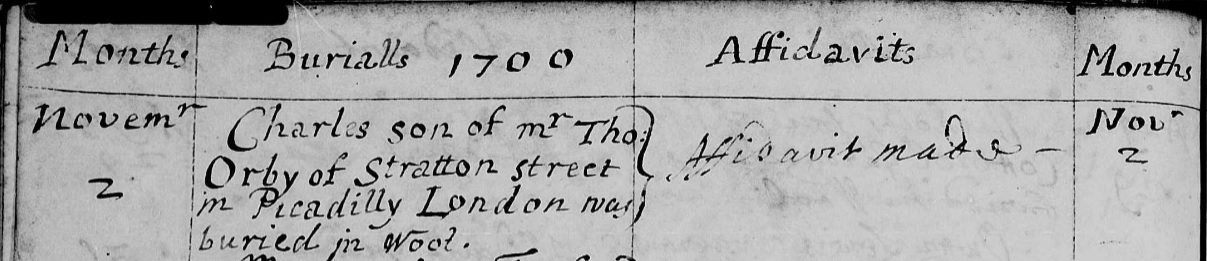 Months Burialls 1700 Affidavits Months
Novemr Charles son of mr Tho: Affidavit made – Novr
2 Orby of Stratton street 2
in Picadilly London was
buried in Wool.